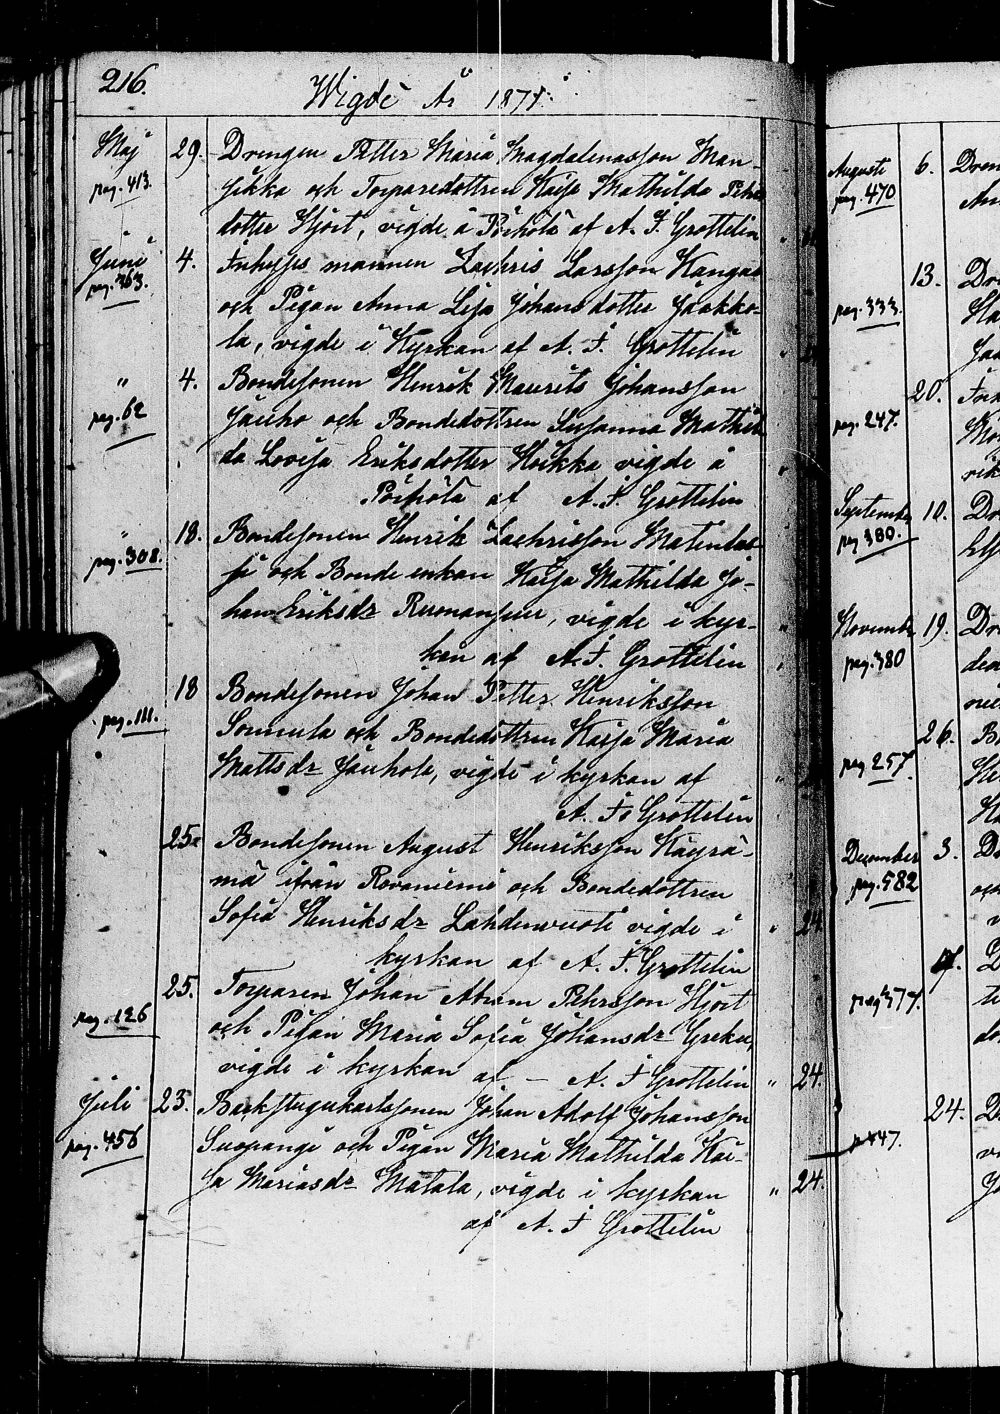 216.
Wigde År 1871.
Maj 29. Drengen Petter Maria Magdalenasson Man-
pag. 413. jikka och Torparedottren Kajsa Mathilda Pehrs
dotter Hjort, vigde å Pöihölä af A. F. Grottelin
Juni 4. Inhyses mannen Zachris Larsson Kangas
pag. 363. och Pigan Anna Lisa Johansdotter Jaakko-
la, vigde i Kyrkan af A. F. Grottelin
" 4. Bondesonen Henrik Maurits Johansson
pag. 62 Jauho och Bondedottren Susanna Mathil
da Lovisa Eriksdotter Hoikka vigde å
Pöihölä af A. F. Grottelin
" 18. Bondesonen Henrik Zachrisson Matinlas
pag. 308. si och Bonde enkan Kajsa Mathilda Jo-
han Eriksdr vigde i kyr-
kan af A. F. Grottelin
18 Bondesonen Johan Petter Henriksson
pag. 111. och Bondedottren Kajsa Maria
Mattsdr Jauhola, vigde i kyrkan af
A. F. Grottelin
25. Bondesonen August Henriksson Käyrä-
mä ifrån Rovaniemi och Bondedottren
Sofia Henriksdr Lahdenvuoti vigde i " 24.
kyrkan af A. F. Grottelin
25. Torparen Johan Abram Pehrsson Hjort
pag. 126 och Pigan Maria Sofia Johansdr Greku,
vigde i kyrkan af – A. F. Grottelin " 24.
Juli 23. Backstugukarlssonen Johan Adolf Johansson
pag. 456 Suopangi och Pigan Maria Mathilda Kai-
sa Mariasdr Matala, vigde i kyrkan " 24.
af A. F. Grottelin
Augusti 6. Dren
pag. 470
13. Dr
pag. 333.
20.
pag. 247.
September 10. Dr
pag 380.
November 19. Dr
pag. 380
26. B
pag 257.
December 3.
pag. 582
pag 377.
24. D
p 447.